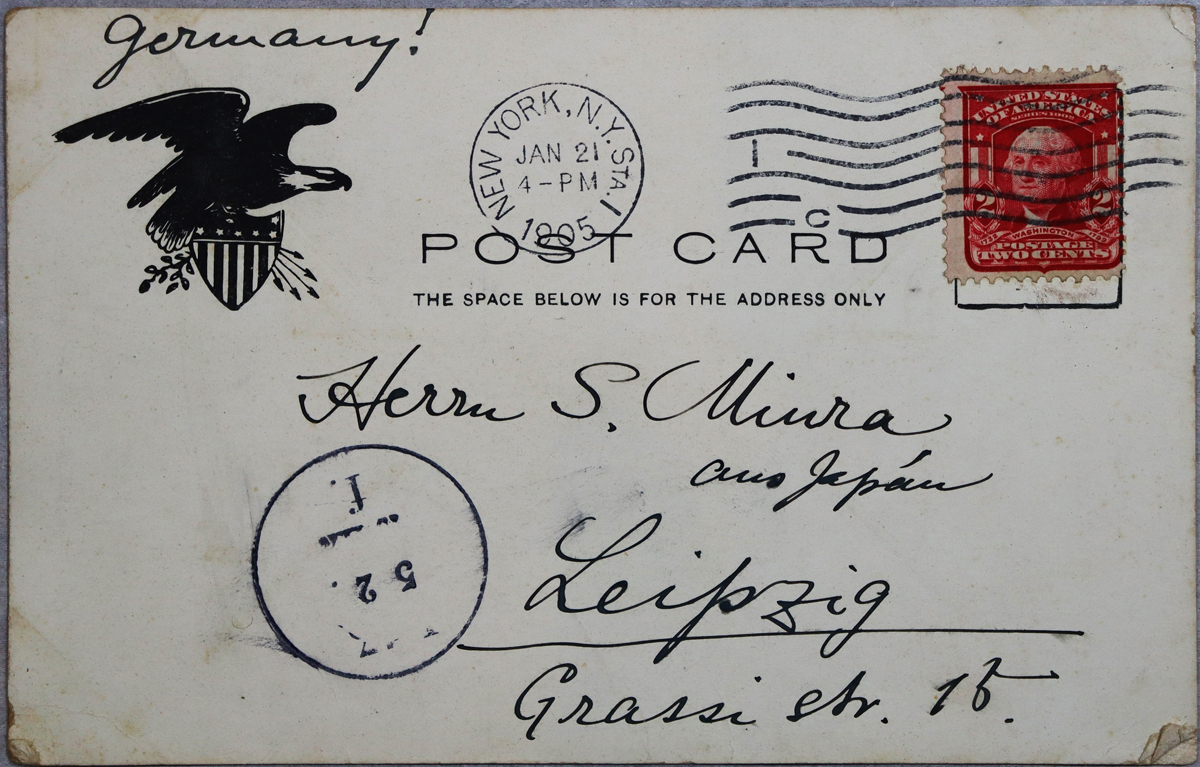 Germany!
NEW YORK, N.Y. STA. 1
JAN 21
4-PM
1905
1
C
UNITED STATES
OF AMERICA
SERIES 1902
2 2
1732 WASHINGTON 1799
POSTAGE
TWO CENTS
POST CARD
THE SPACE BELOW IS FOR THE ADDRESS ONLY
Herrn S. Miura
aus Japán
Leipzig
Grassi str. 15.
52